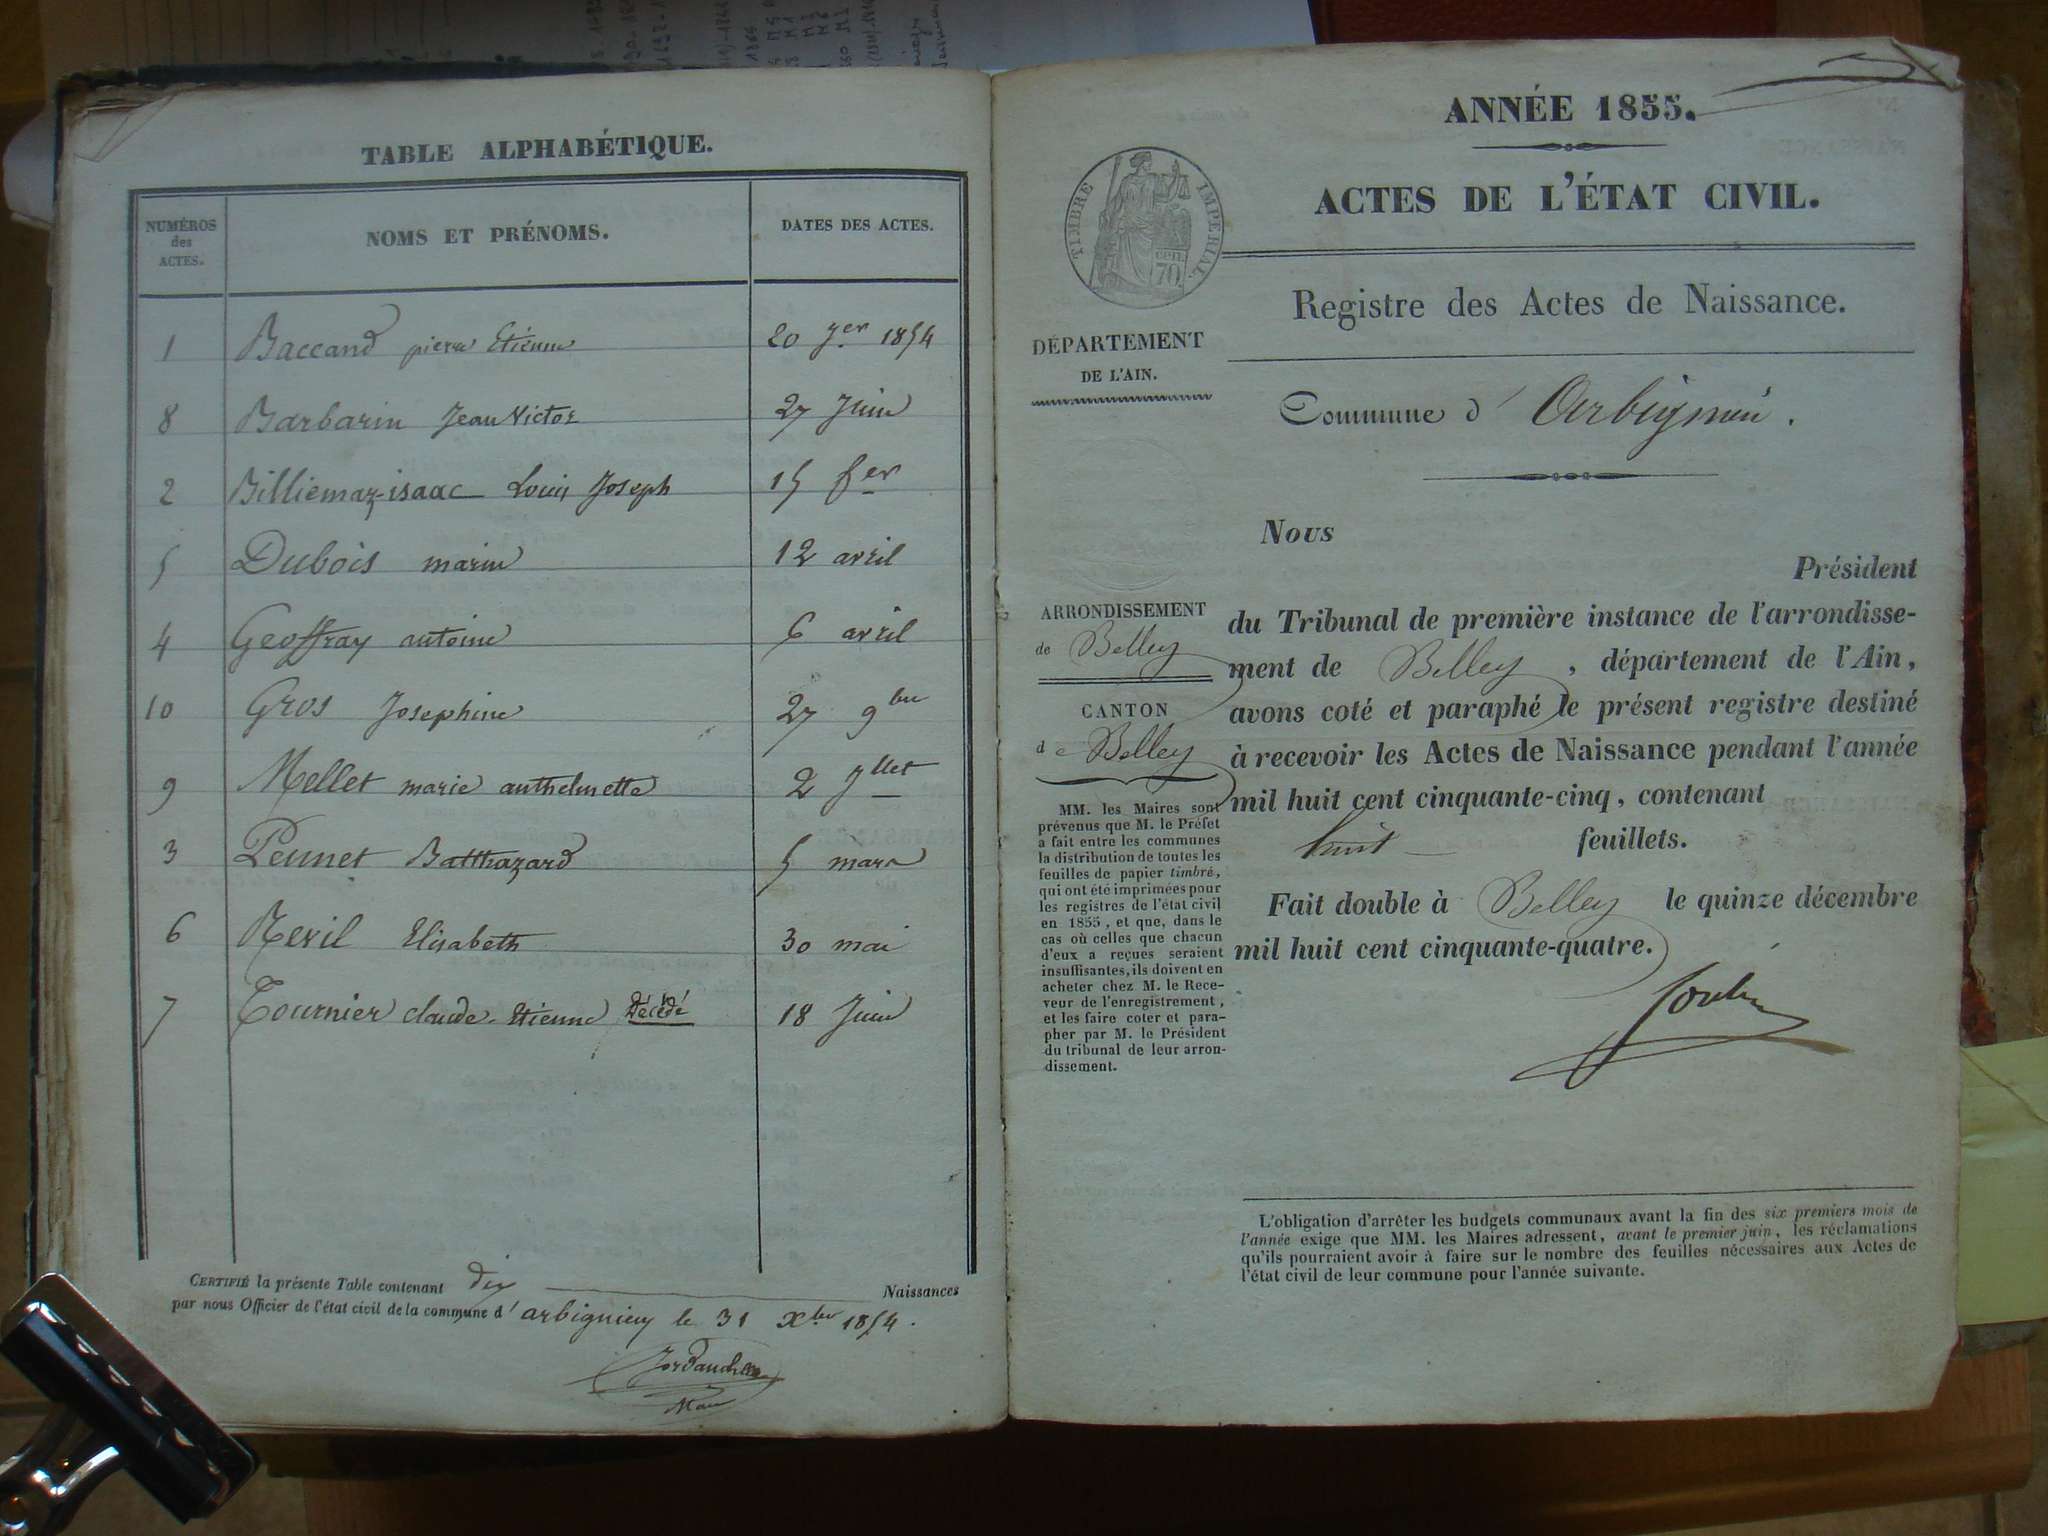 TABLE ALPHABÉTIQUE.
NUMÉROS
des
ACTES.
NOMS ET PRÉNOMS.
DATES DES ACTES.
1 Baccand pierre Etienne 20 Jer 1854
8 Barbarin Jean Victor 27 Juin
2 Billiemaz-isaac Louis Joseph 15 fer
5 Dubois marin 12 avril
4 Geoffray antoine 6 avril
10 Gros Josephine 27 9bre
9 Mellet marie anthelmette 2 Jllet
3 Peunet Balthazard 5 mars
6 Revil Elisabeth 30 mai
7 Tournier claude-Etienne Décédé 18 Juin
CERTIFIÉ la présente Table contenant dix Naissances
par nous Officier de l'état civil de la commune d'arbignieu le 31 Xbre 1854.
ANNÉE 1855.
ACTES DE L'ÉTAT CIVIL.
TIMBRE IMPÉRIAL.
70 cen.
Registre des Actes de Naissance.
DÉPARTEMENT
DE L'AIN.
Commune d'Arbignieu.
ARRONDISSEMENT
de Belley
CANTON
de Belley
MM. les Maires sont
prévenus que M. le Préfet
a fait entre les communes
la distribution de toutes les
feuilles de papier timbré,
qui ont été imprimées pour
les registres de l'état civil
en 1855, et que, dans le
cas où celles que chacun
d'eux a reçues seraient
insuffisantes, ils doivent en
acheter chez M. le Rece-
veur de l'enregistrement,
et les faire coter et para-
pher par M. le Président
du tribunal de leur arron-
dissement.
Nous
Président
du Tribunal de première instance de l'arrondisse-
ment de Belley, département de l'Ain,
avons coté et paraphé le présent registre destiné
à recevoir les Actes de Naissance pendant l'année
mil huit cent cinquante-cinq, contenant
huit feuillets.
Fait double à Belley le quinze décembre
mil huit cent cinquante-quatre.
L'obligation d'arrêter les budgets communaux avant la fin des six premiers mois de
l'année exige que MM. les Maires adressent, avant le premier juin, les réclamations
qu'ils pourraient avoir à faire sur le nombre des feuilles nécessaires aux Actes de
l'état civil de leur commune pour l'année suivante.